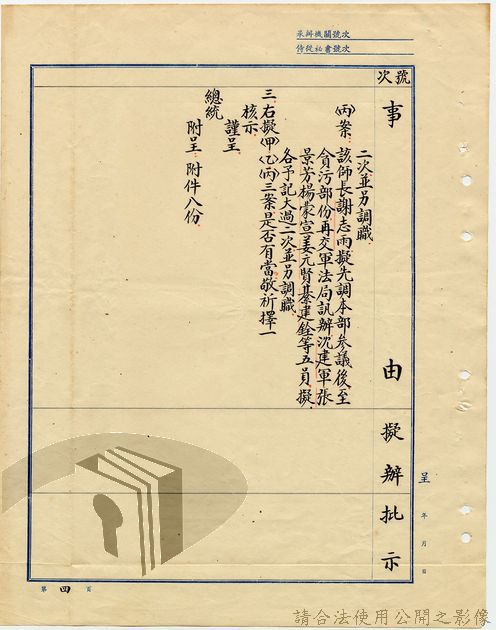 承辦機關號次
侍從祕書號次
號次
事由
擬辦
批示
二次並另調職
(丙)案：該師長謝志雨擬先調本部參議後至
貪污部份再交軍法局訊辦沈建軍張
景芳楊蒙宣姜元賢綦建銓等五員擬
各予記大過二次並另調職
三、右擬(甲)(乙)(丙)三案是否有當敬祈擇一
核示
謹呈
總統
附呈附件八份
呈
年
月
日
第四頁
請合法使用公開之影像